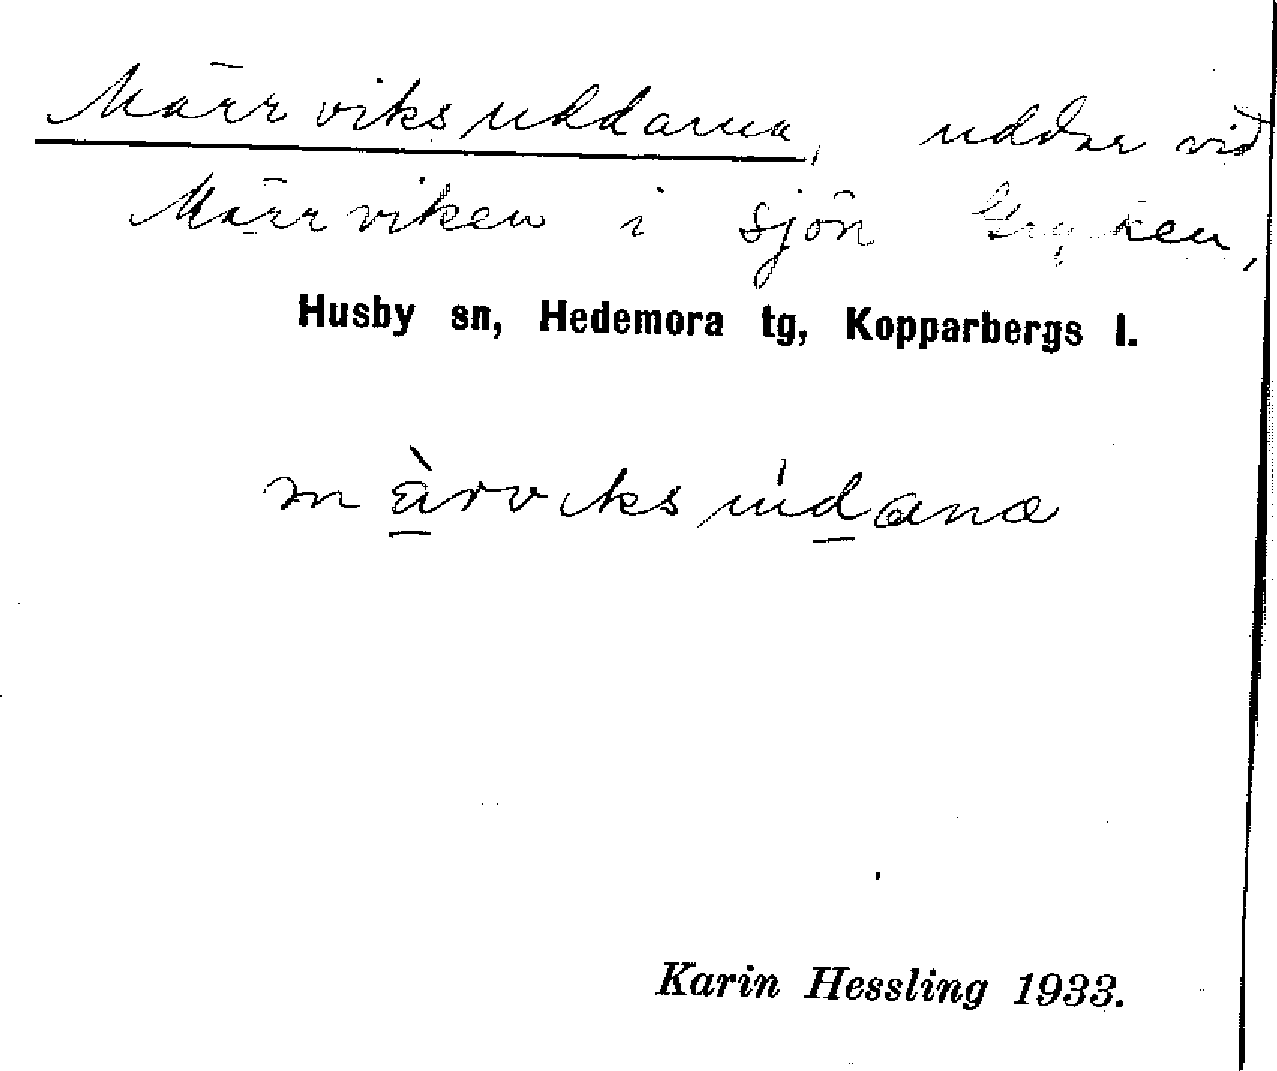 Märrviksuddarna, uddar vid
Märrviken i sjön Gryken,
Husby sn, Hedemora tg, Kopparbergs l.
märviksùdana
Karin Hessling 1933.